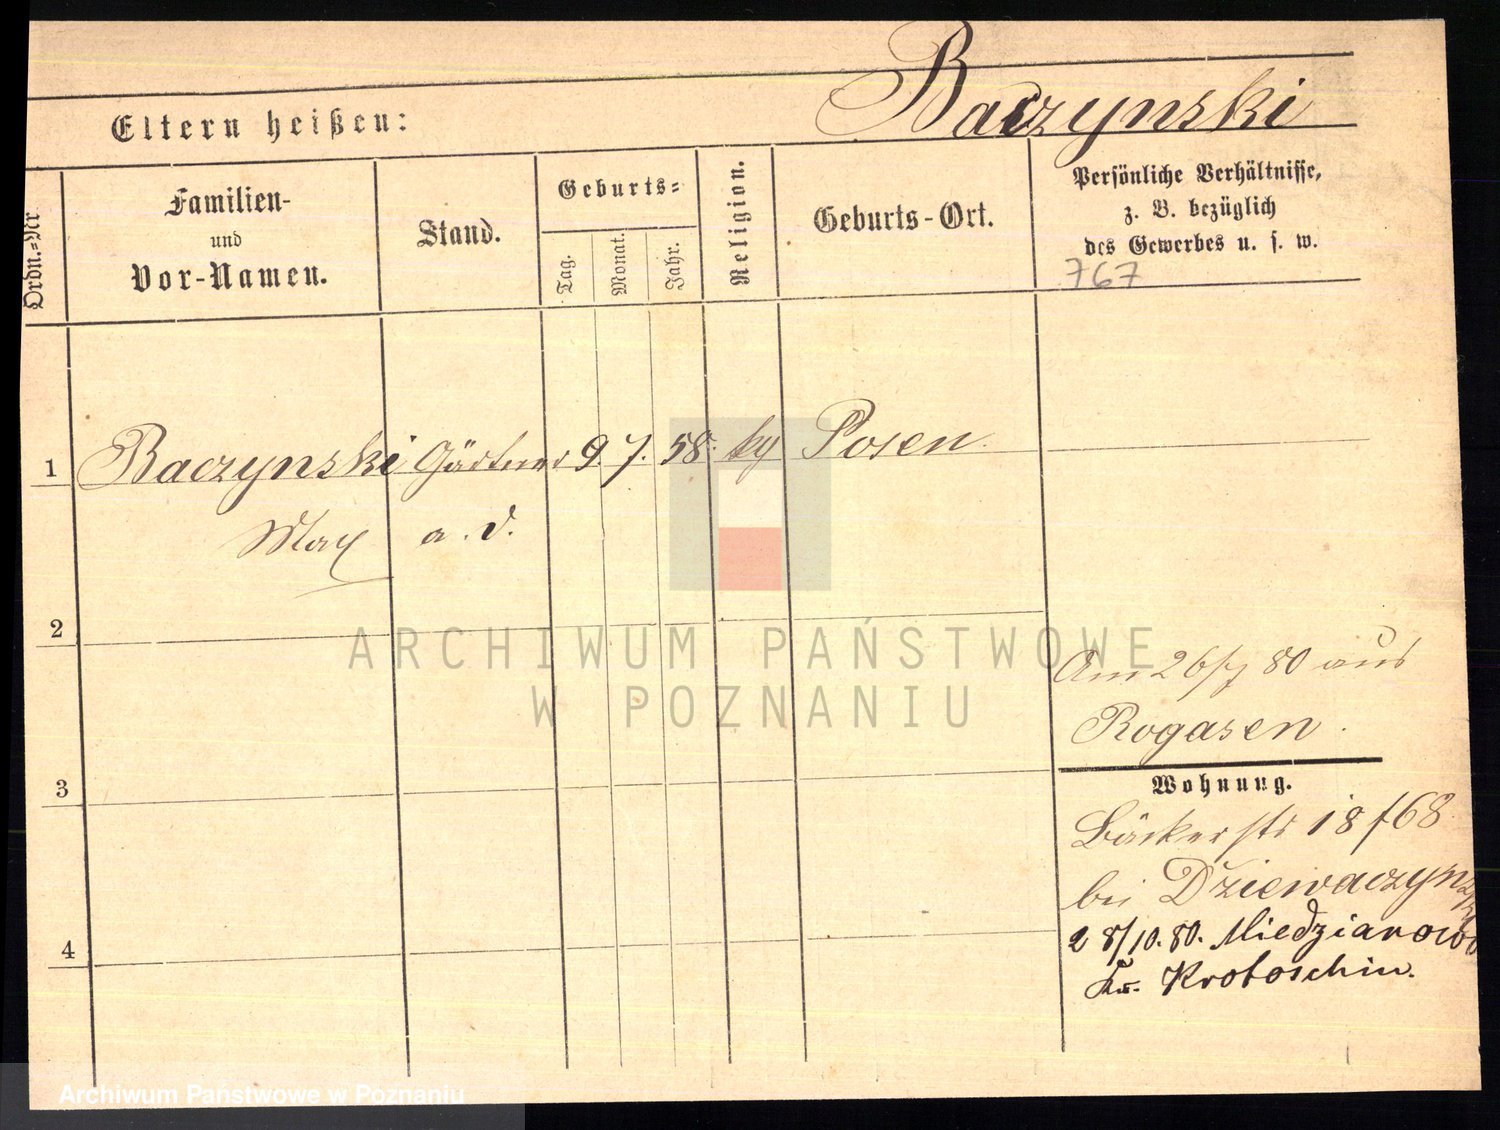 Baczynski
Eltern heißen:
Ordn.=Nr
Familien-
und
Vor-Namen.
Stand.
Geburts=
Tag.
Monat.
Jahr.
Religion.
Geburts-Ort.
Persönliche Verhältnisse,
z. B. bezüglich
des Gewerbes u. s. w.
767
1 Baczynski Gärtner 9. 7. 58. Posen.
Max a. D.
2
ARCHIWUM PAŃSTWOWE
W POZNANIU
Am 26/7 80 aus
Rogasen.
3
Wohnung.
Bäckerstr 18 f68
bei
4
28/10. 80. Miedzianowo
Kr. Krotoschin.
Archiwum Państwowe w Poznaniu